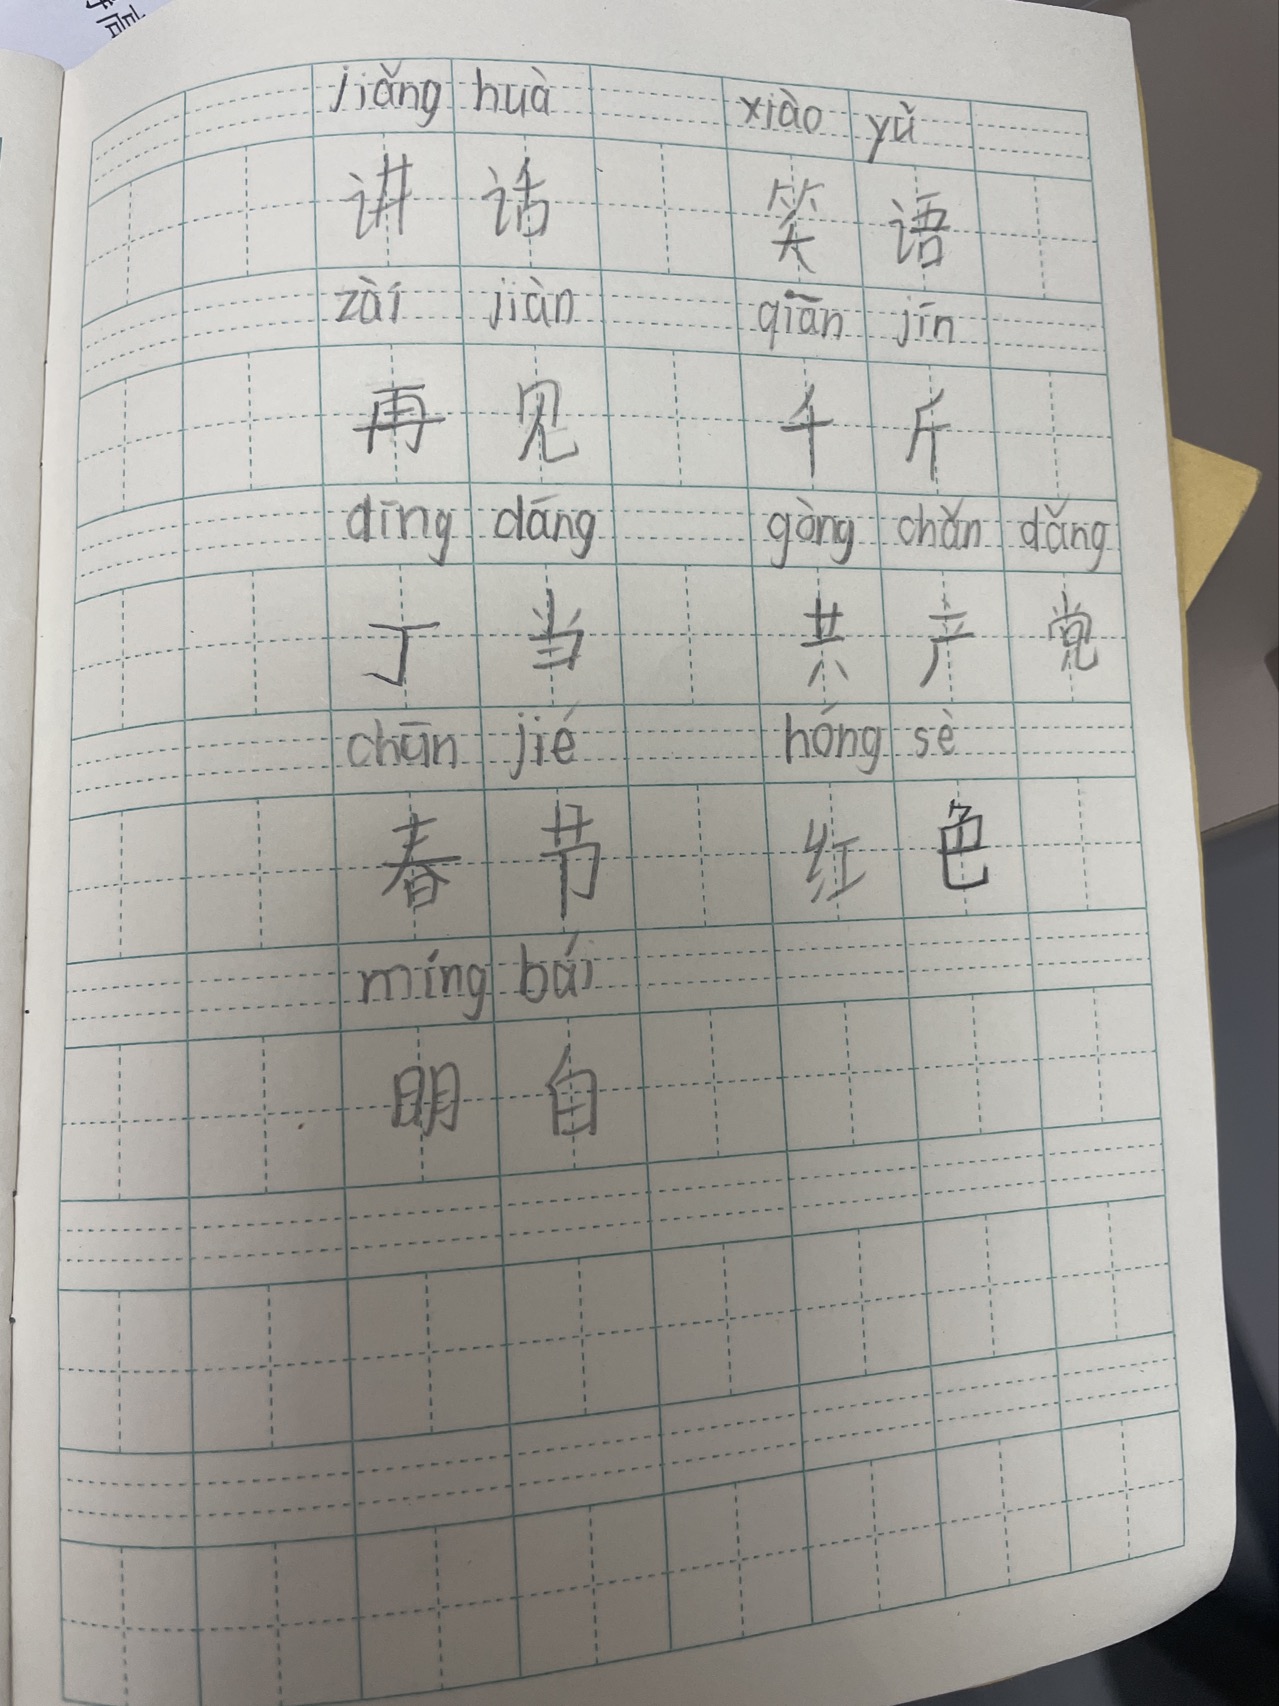 jiǎng huà xiào yǔ
讲 话 笑 语
zài jiàn qiān jīn
再 见 千 斤
dīng dāng gòng chǎn dǎng
丁 当 共 产 党
chūn jié hóng sè
春 节 红 色
míng bái
明 自